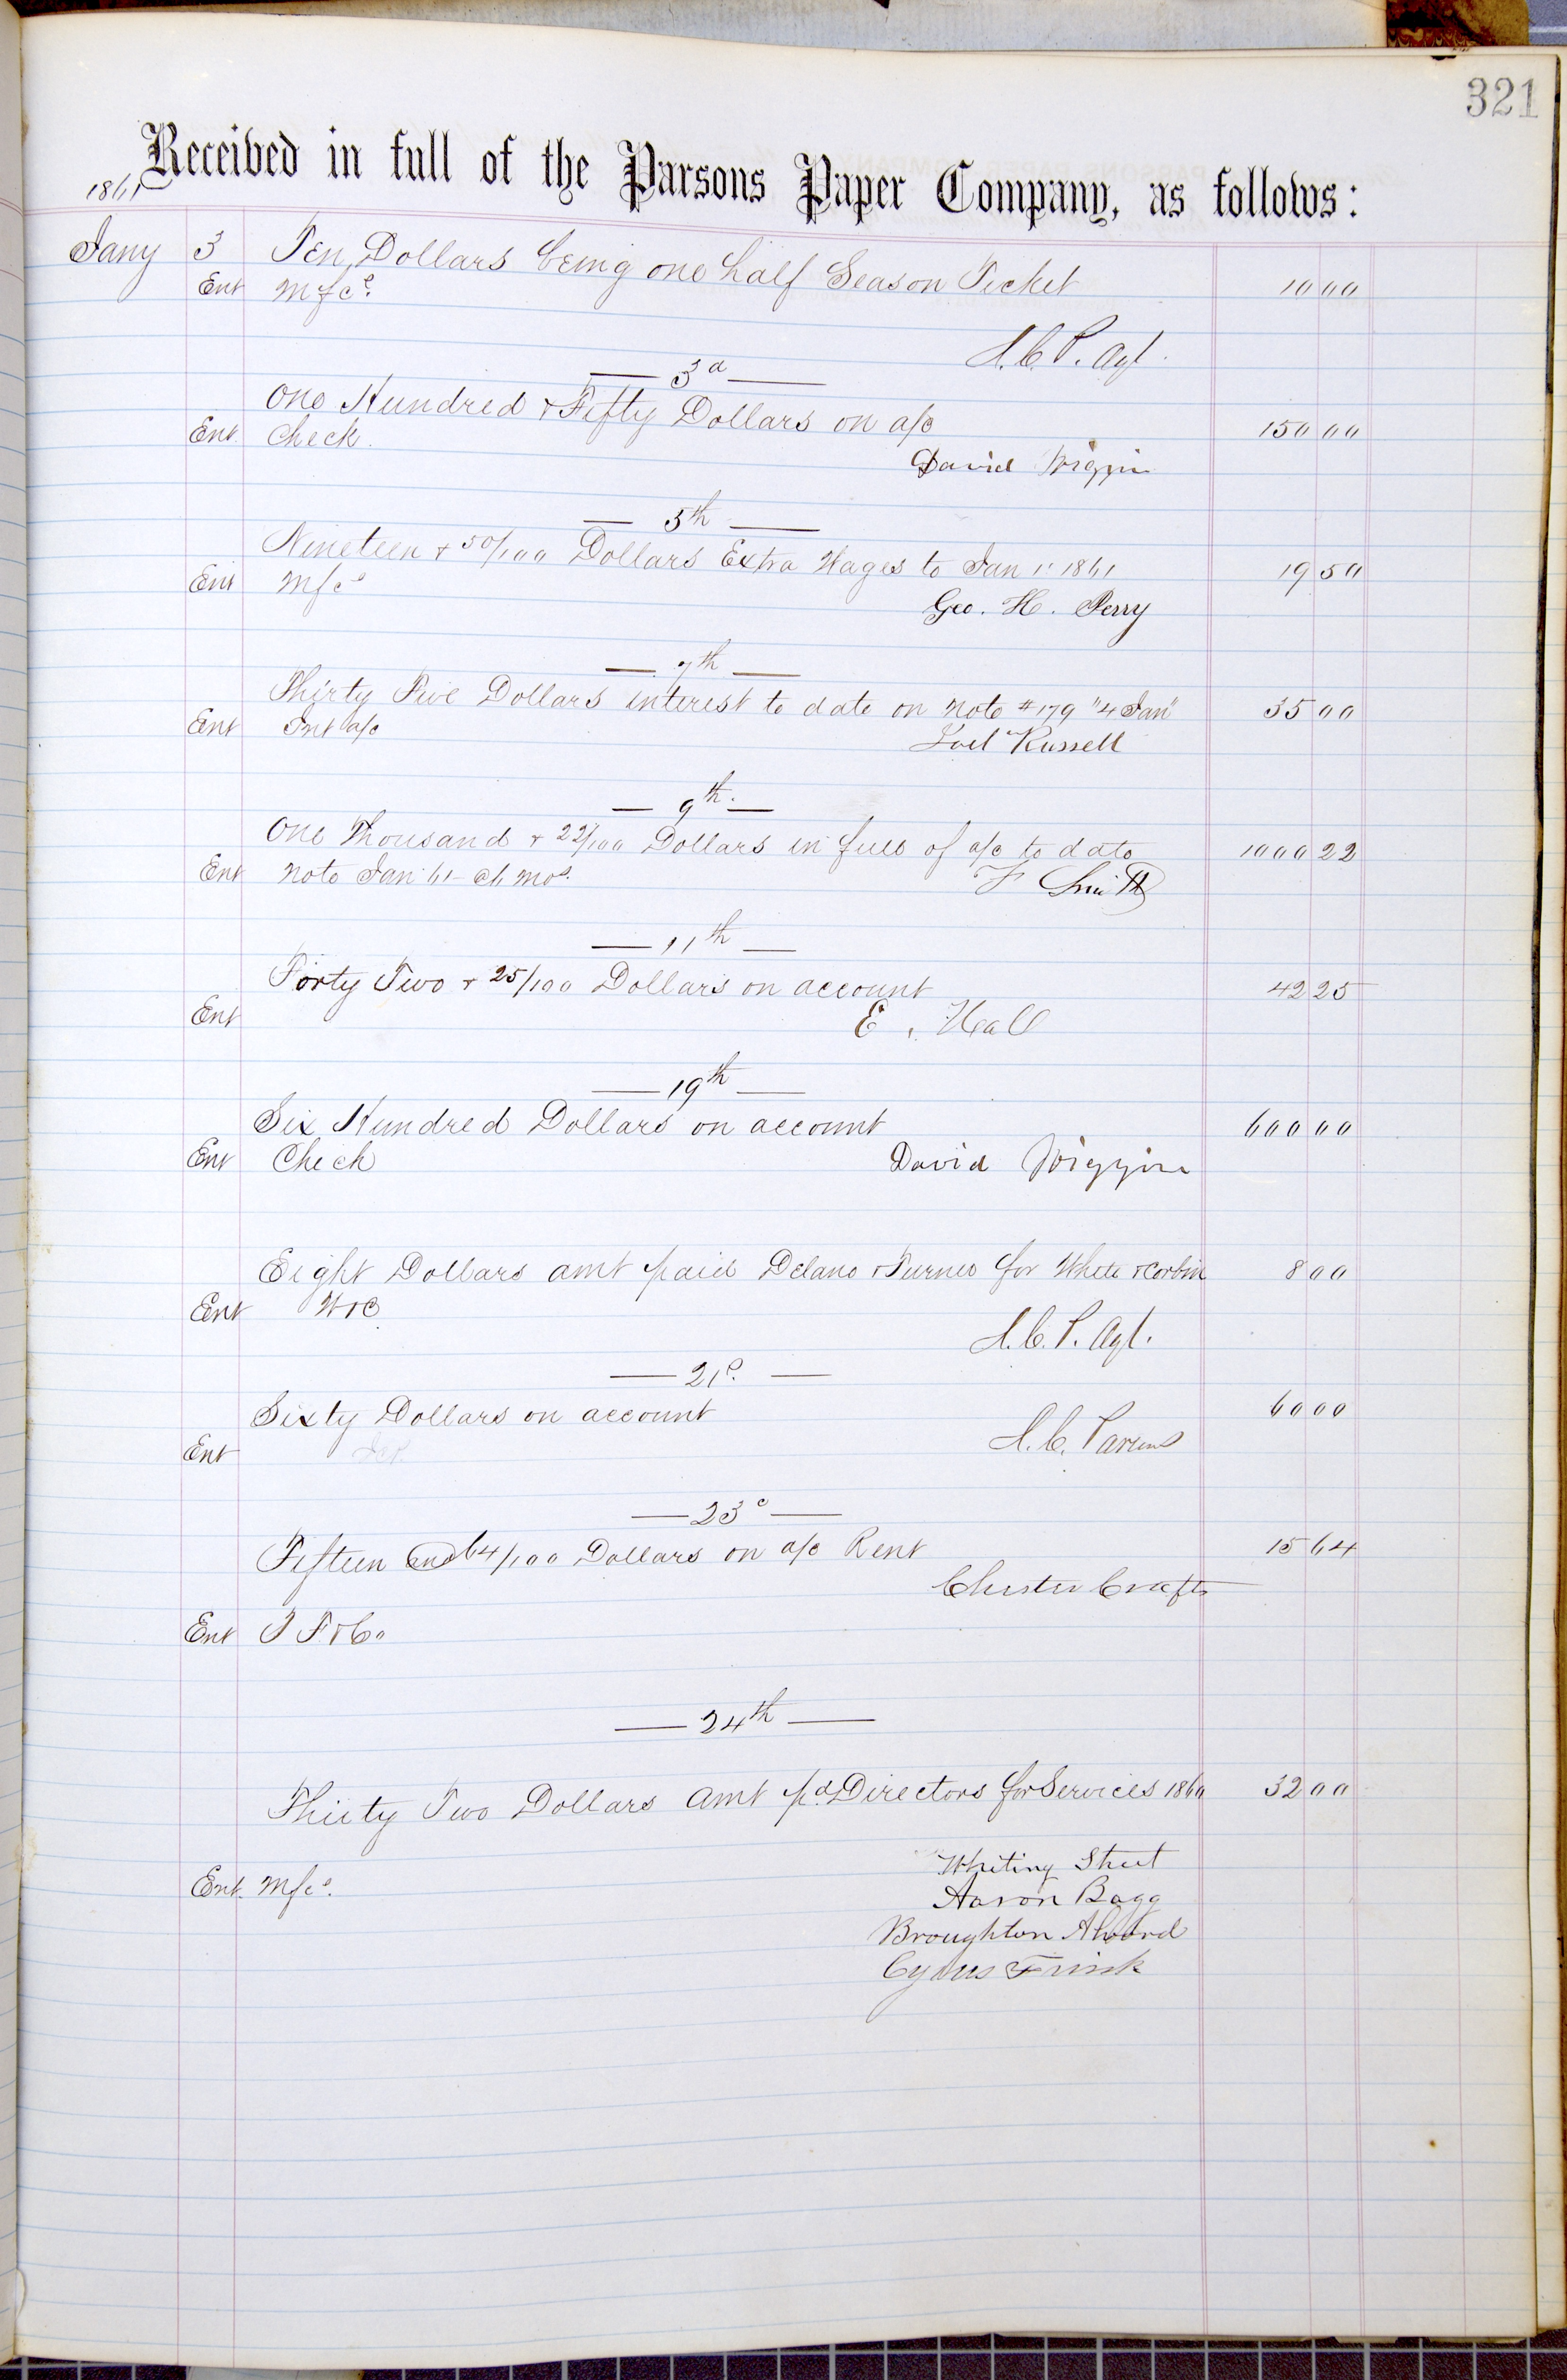 321
Received in full of the Parsons Paper Company, as follows:
1861
Jany 3 Ten Dollars being one half Season Ticket 10 00
Ent Mfce.
J. C. P. Agt.
— 3d —
One Hundred & Fifty Dollars on a/c 150 00
Ent Check.
David Wiggin
— 5th —
Nineteen & 50/100 Dollars Extra Wages to Jan 1" 1861 19 50
Ent Mfce
Geo. H. Perry
— 7th —
Thirty Five Dollars interest to date on note #179 "4 Jan" 35 00
Ent Int a/c
Joel Russell
— 9th —
One Thousand & 22/100 Dollars in full of a/c to date 1000 22
Ent Note Jan 61 - 6 mos.
F Smith
— 11th —
Forty Two & 25/100 Dollars on account 42 25
Ent
E. Hall
— 19th —
Six Hundred Dollars on account 600 00
Ent Check
David Wiggin
Eight Dollars amt paid Delano & Turner for White & Corbin 8 00
Ent W&C.
J. C. P. Agt.
— 21s. —
Sixty Dollars on account 60 00
Ent
J. C. Parsons
— 23d —
Fifteen and 64/100 Dollars on a/c Rent 15 64
Chester Crafts
Ent F&Co
— 24th —
Thirty Two Dollars amt pd. Directors for Services 1860 32 00
Whiting Street
Ent. Mfce.
Aaron Bagg
Broughton Alvord
Cyrus Frink